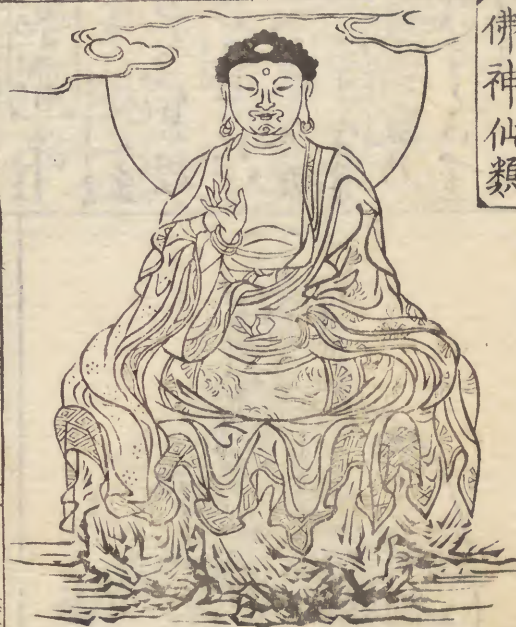 佛神仙類